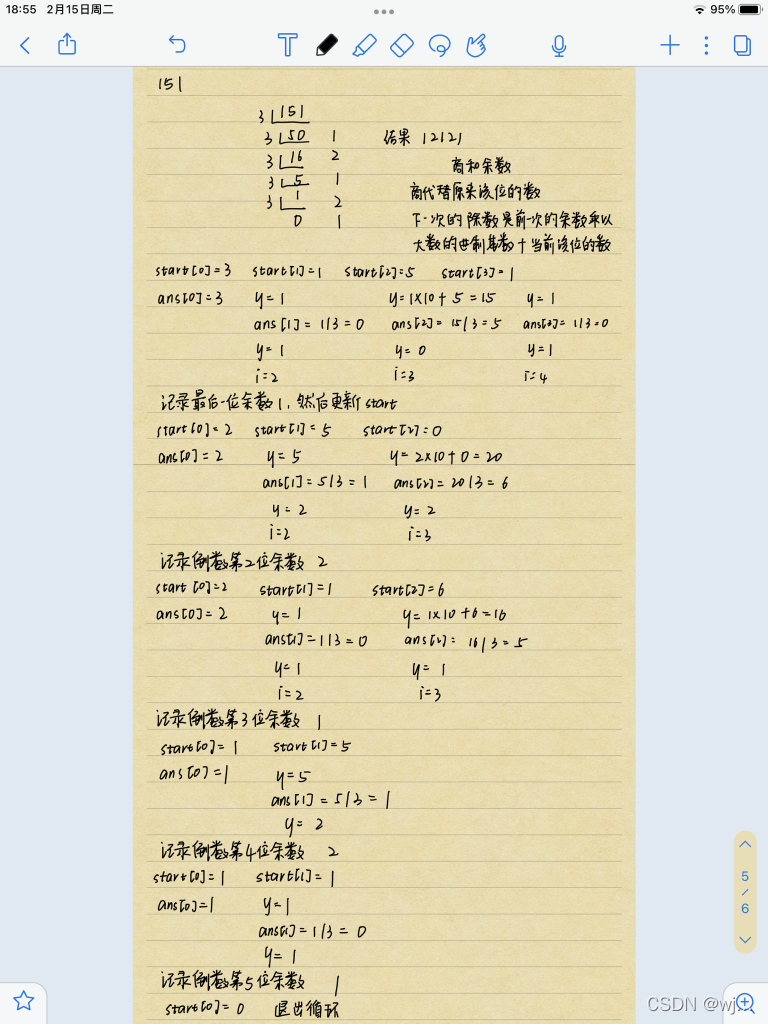 18:55 2月15日周二
95%
151
3 151
3 50 1 结果 12121
3 16 2 商和余数
3 5 1 商代替原来该位的数
3 1 2 下一次的除数是前一次的余数乘以
0 1 大数的进制基数+当前该位的数
start[0]=3 start[1]=1 start[2]=5 start[3]=1
ans[0]=3 y=1 y=1×10+5=15 y=1
ans[1]=1/3=0 ans[2]=15/3=5 ans[3]=1/3=0
y=1 y=0 y=1
i=2 i=3 i=4
记录最后一位余数1,然后更新start
start[0]=2 start[1]=5 start[2]=0
ans[0]=2 y=5 y=2×10+0=20
ans[1]=5/3=1 ans[2]=20/3=6
y=2 y=2
i=2 i=3
记录倒数第2位余数 2
start[0]=2 start[1]=1 start[2]=6
ans[0]=2 y=1 y=1×10+6=16
ans[1]=1/3=0 ans[2]=16/3=5
y=1 y=1
i=2 i=3
记录倒数第3位余数 1
start[0]=1 start[1]=5
ans[0]=1 y=5
ans[1]=5/3=1
y=2
记录倒数第4位余数 2
start[0]=1 start[1]=1
ans[0]=1 y=1
ans[1]=1/3=0
y=1
记录倒数第5位余数 1
start[0]=0 退出循环
5/6
CSDN @wj...